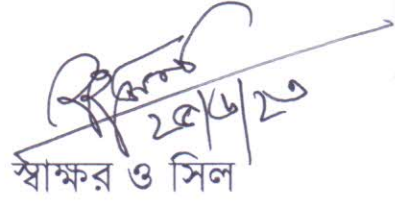 ২৫/৬/২৩
স্বাক্ষর ও সিল